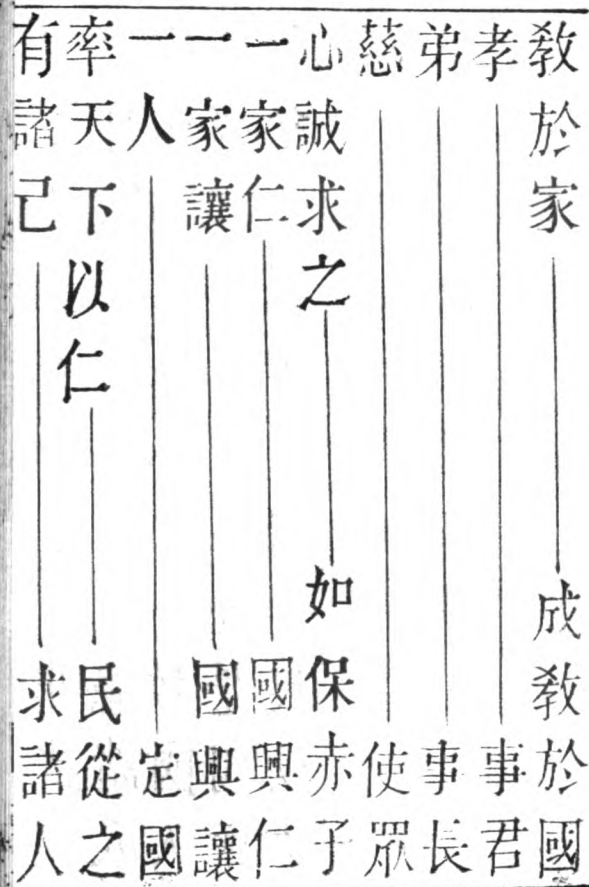 教於家 成教於國
孝 事君
弟 事長
慈 使眾
心誠求之 如保赤子
一家仁 國興仁
一家讓 國興讓
一人 定國
率天下以仁 民從之
有諸己 求諸人